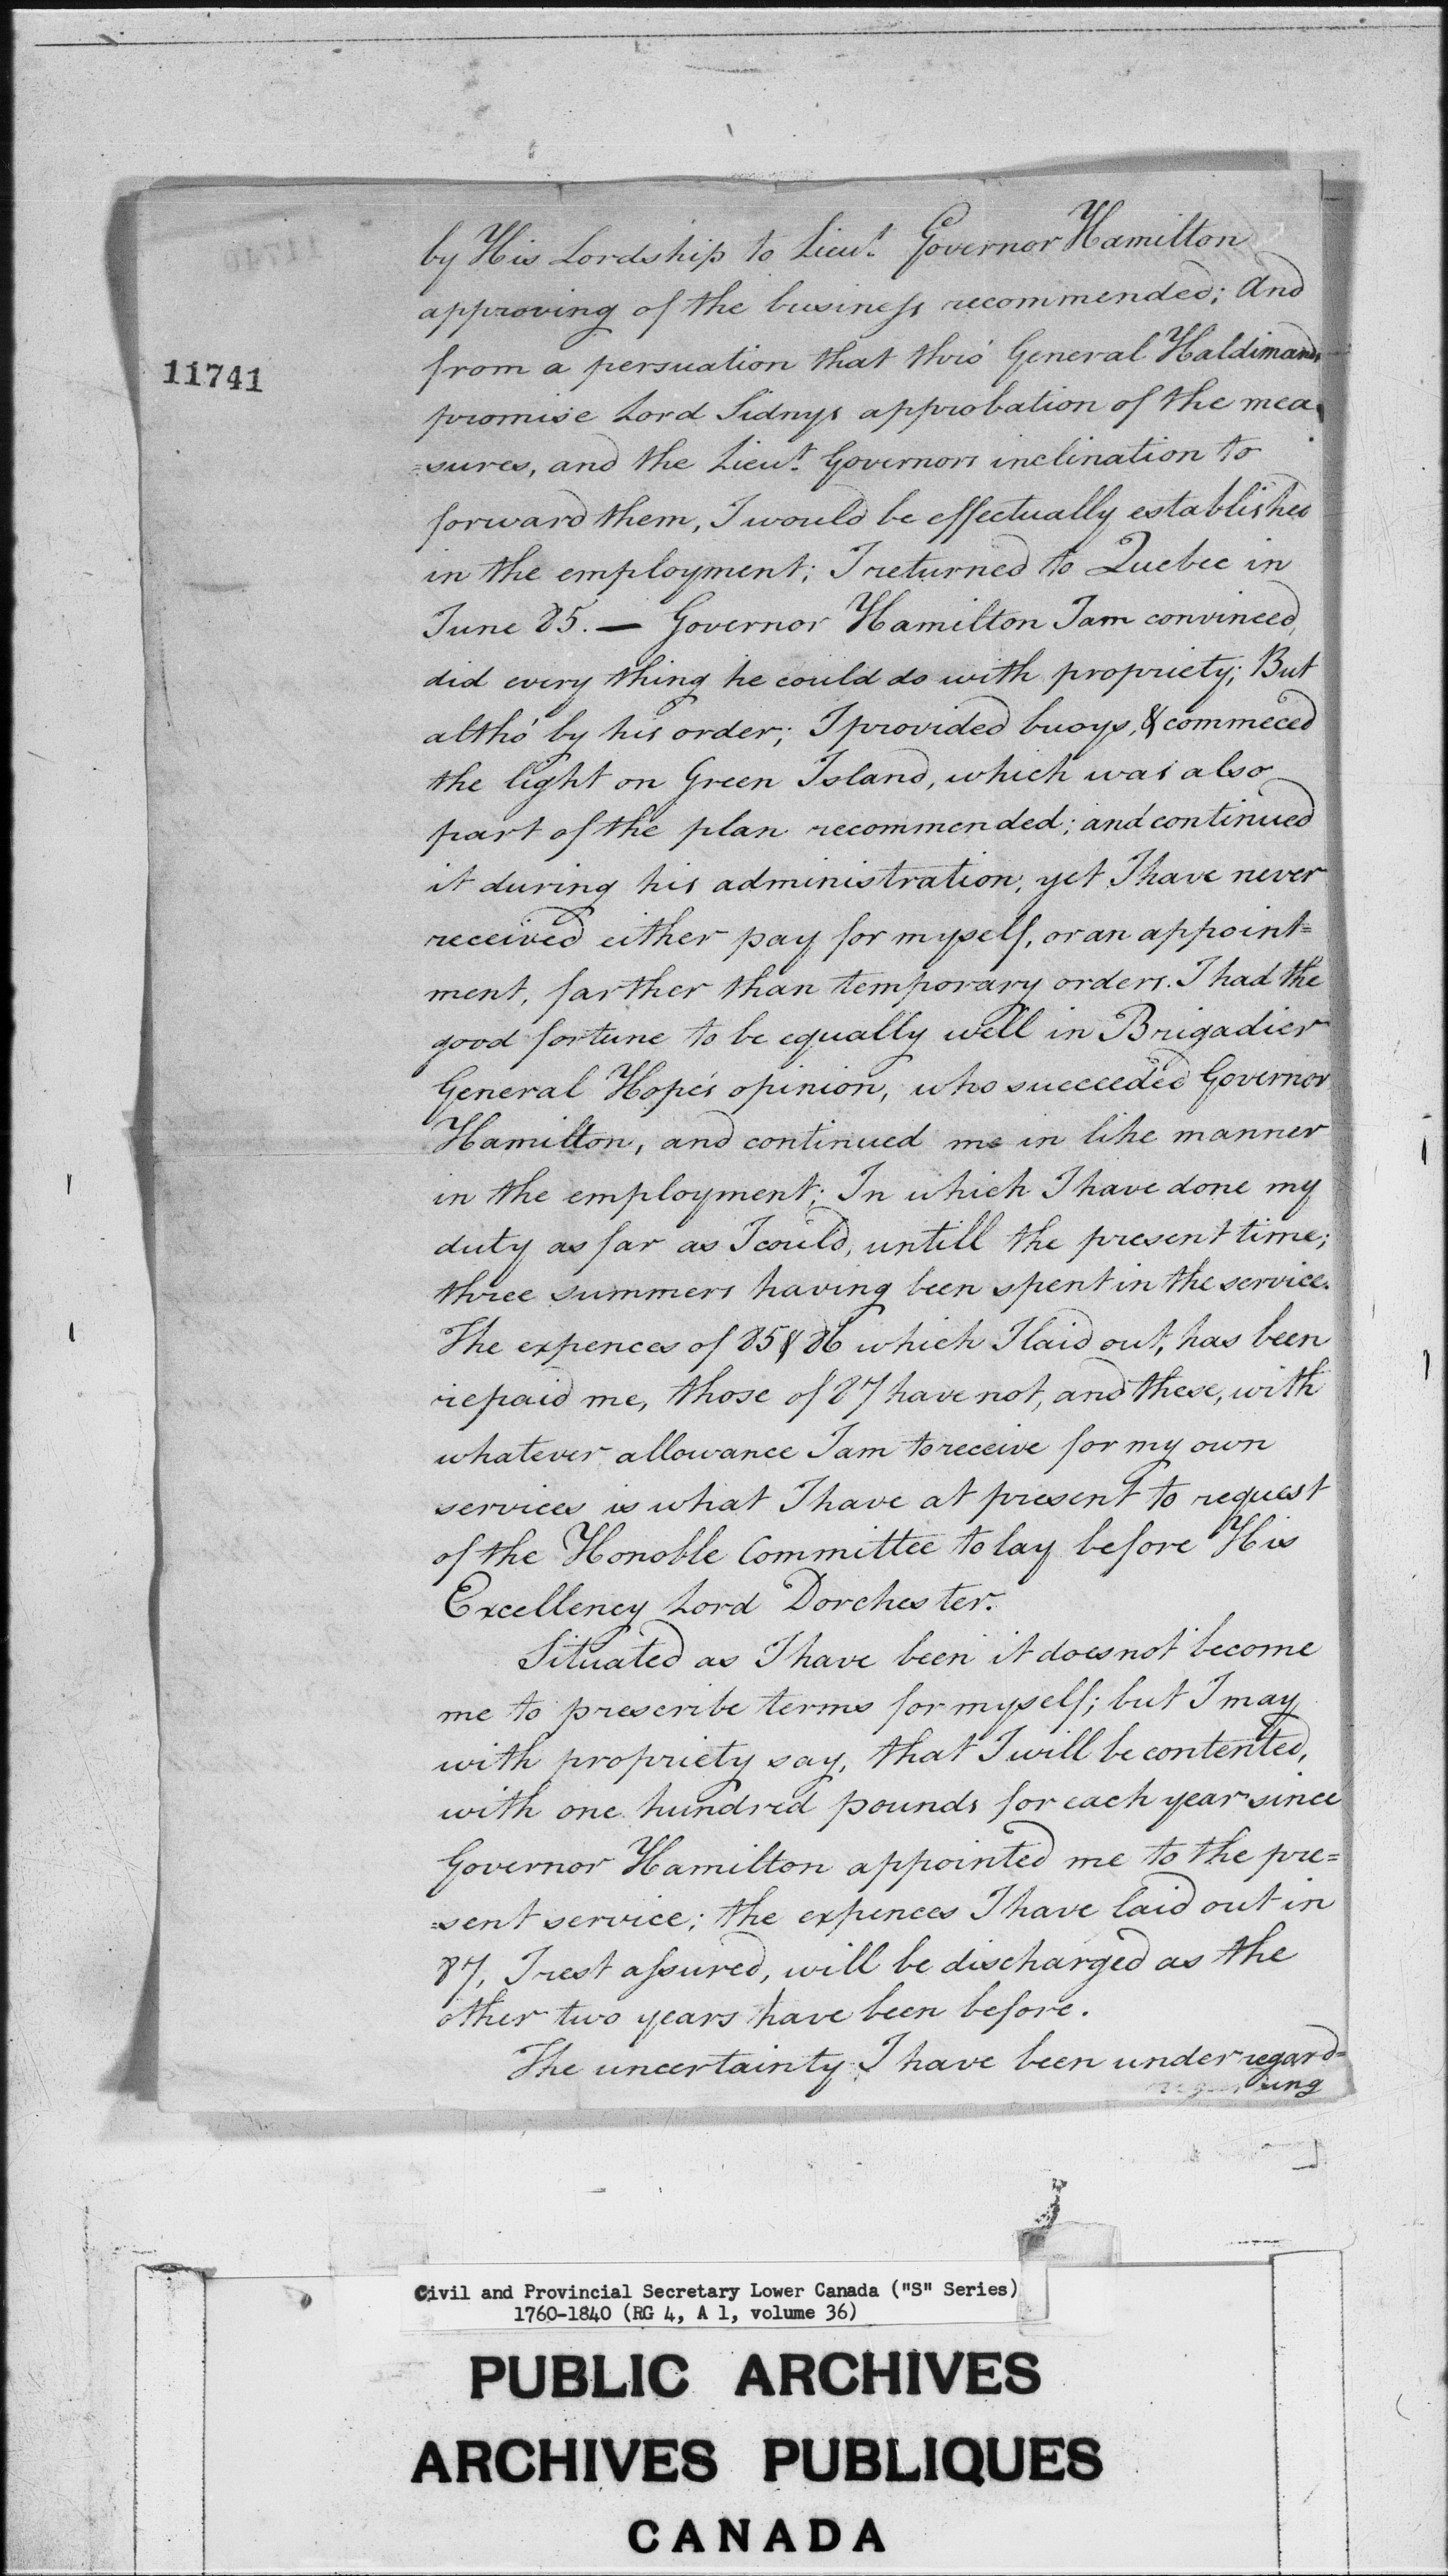 by His Lordship to Lieut. Governor Hamilton
approving of the business recommended; And
from a persuation that thro' General Haldimands
11741
promise Lord Sidnys approbation of the mea
=sures, and the Lieut. Governors inclination to
forward them, I would be effectually established
in the employment; I returned to Quebec in
June 85. — Governor Hamilton I am convinced,
did every thing he could do with propriety; But
altho' by his order; I provided buoys, & commeced
the light on Green Island, which was also
part of the plan recommended; and continued
it during his administration; yet I have never
received either pay for myself, or an appoint=
ment, farther than temporary orders. I had the
good fortune to be equally well in Brigadier
General Hope's opinion, who succeeded Governor
Hamilton, and continued me in like manner
in the employment; In which I have done my
duty as far as I could, untill the present time;
three summers having been spent in the service.
The expences of 85 & 86 which I laid out, has been
repaid me, those of 87 have not, and these, with
whatever allowance I am to receive for my own
services is what I have at present to request
of the Honoble Committee to lay before His
Excellency Lord Dorchester.
Situated as I have been it does not become
me to prescribe terms for myself; but I may
with propriety say, that I will be contented,
with one hundred pounds for each year since
Governor Hamilton appointed me to the pre=
=sent service; the expences I have laid out in
87, I rest assured, will be discharged as the
other two years have been before.
The uncertainty I have been under regard=
ing
Civil and Provincial Secretary Lower Canada ("S" Series)
1760-1840 (RG 4, A 1, volume 36)
PUBLIC ARCHIVES
ARCHIVES PUBLIQUES
CANADA